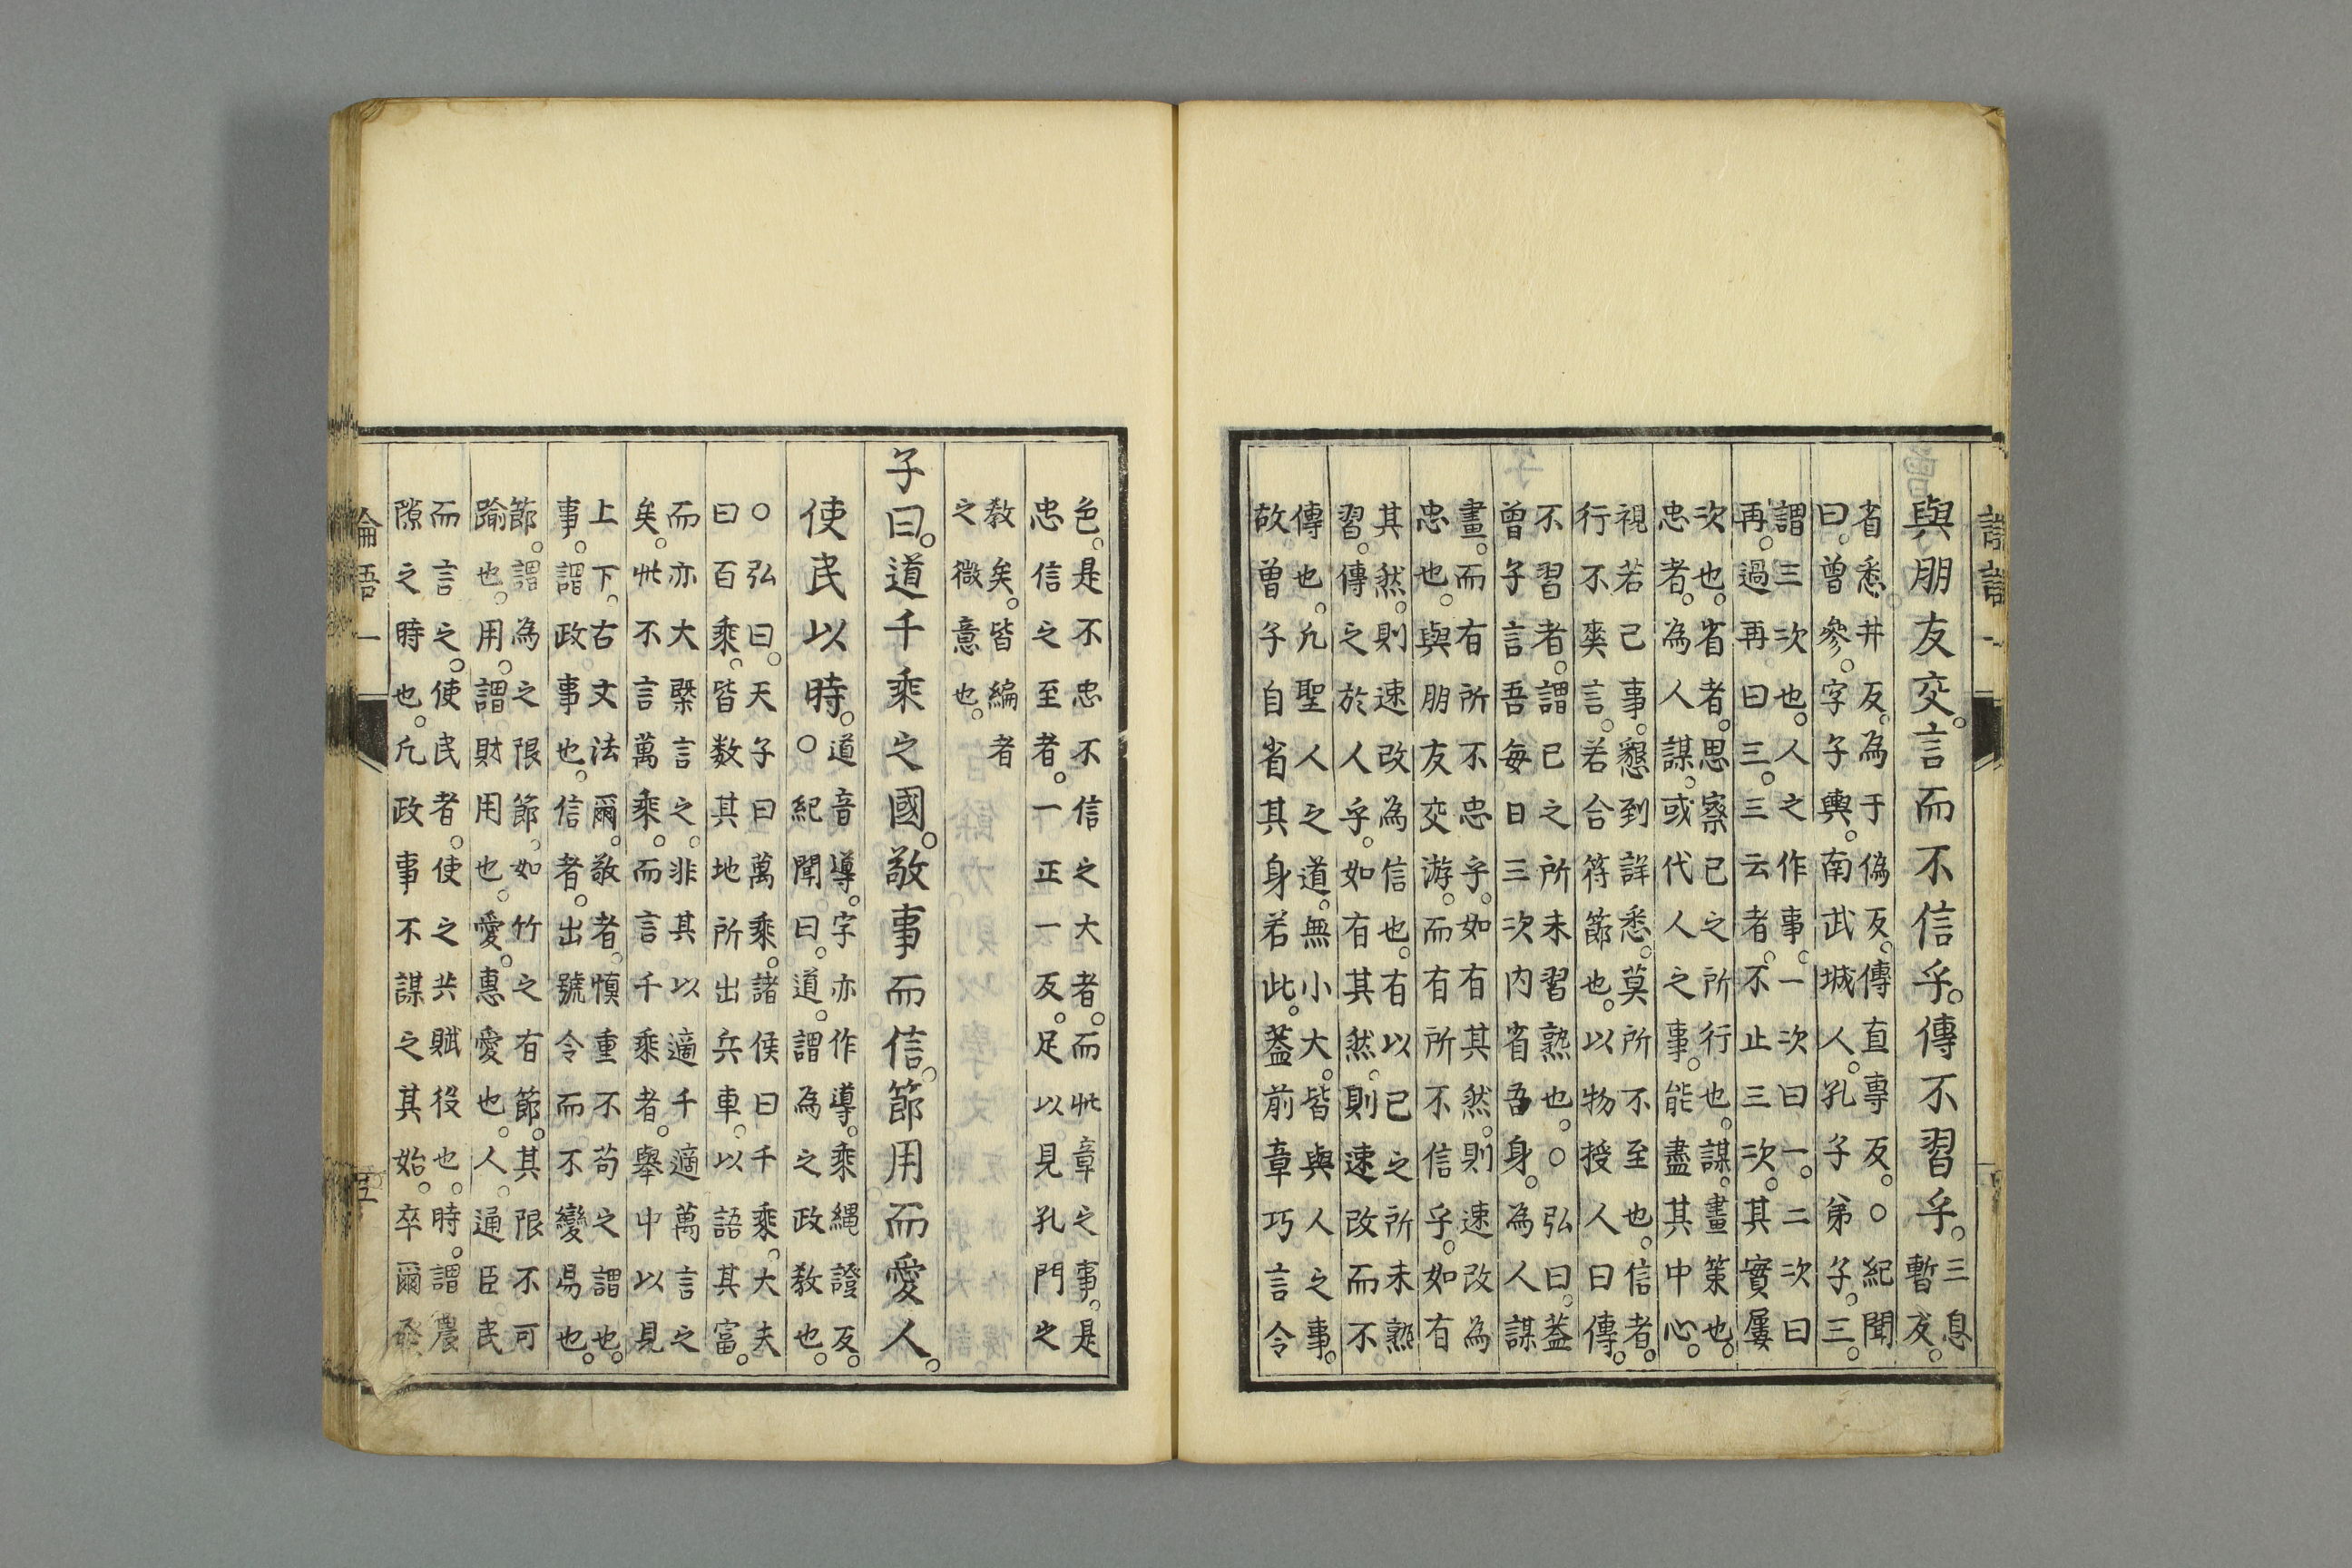 與朋友交。言而不信乎。傳不習乎。三息
暫反。
省悉井反。為于偽反。傳直專反。○紀聞
曰。曾參。字子輿。南武城人。孔子弟子。三。
謂三次也。人之作事。一次曰一。二次曰
再。過再曰三。三云者。不止三次。其實屢
次也。省者。思察已之所行也。謀。畫策也。
忠者。為人謀。或代人之事。能盡其中心。
視若己事。懇到詳悉。莫所不至也。信者。
行不爽言。若合符節也。以物授人曰傳。
不習者。謂已之所未習熟也。○弘曰。蓋
曾子言吾每日三次內省吾身。為人謀
畫。而有所不忠乎。如有其然。則速改為
忠也。與朋友交游。而有所不信乎。如有
其然。則速改為信也。有以已之所未熟
習。傳之於人乎。如有其然。則速改而不
傳也。凢聖人之道。無小大。皆與人之事。
故曾子自省其身若此。蓋前章巧言令
色。是不忠不信之大者。而此章之事。是
忠信之至者。一正一反。足以見孔門之
教矣。皆編者
之微意也。
子曰。道千乘之國。敬事而信。節用而愛人。
使民以時。道音導。字亦作導。乘繩證反。
○紀聞曰。道。謂為之政教也。
○弘曰。天子曰萬乘。諸侯曰千乘。大夫
曰百乘。皆数其地所出兵車。以語其富。
而亦大槩言之。非其以適千適萬言之
矣。此不言萬乘。而言千乘者。舉中以見
上下。古文法爾。敬者。慎重不苟之謂也。
事。謂政事也。信者。出號令而不變易也。
節。謂為之限節。如竹之有節。其限不可
踰也。用。謂財用也。愛。惠愛也。人。通臣民
而言之。使民者。使之共賦役也。時。謂農
隙之時也。凢政事不謀之其始。卒爾
論語一
五